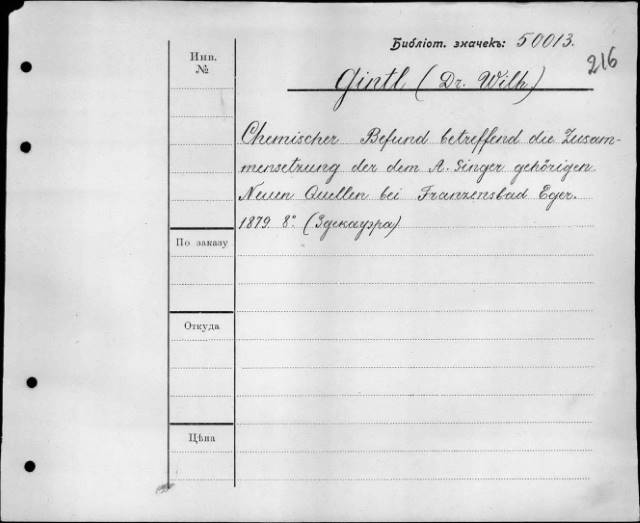 Библіот. значекъ: 50013.
216
Инв.
№
Gintl (Dr. Wilh)
Chemischer Befund betreffend die Zusam-
mensetzung der dem A. Singer gehörigen
Neuen Quellen bei Franzensbad Eger.
1879 8° (Здекауэра)
По заказу
Откуда
Цѣна